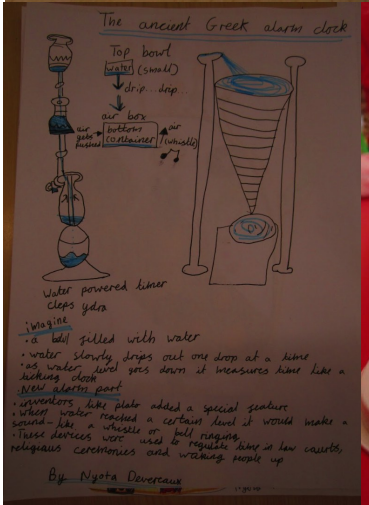 The ancient Greek alarm clock
Top bowl
water (small)
drip... drip...
air box
air gets pushed
bottom container
air
(whistle)
Water powered timer
cleps ydra
imagine
• a bowl filled with water
• water slowly drips out one drop at a time
• as water level goes down it measures time like a
ticking clock
New alarm part
• inventors like plato added a special feature
• when water reached a certain level it would make a
sound - like a whistle or bell ringing
• These devices were used to regulate time in law courts,
religious ceremonies and waking people up
By Nyota Devereaux